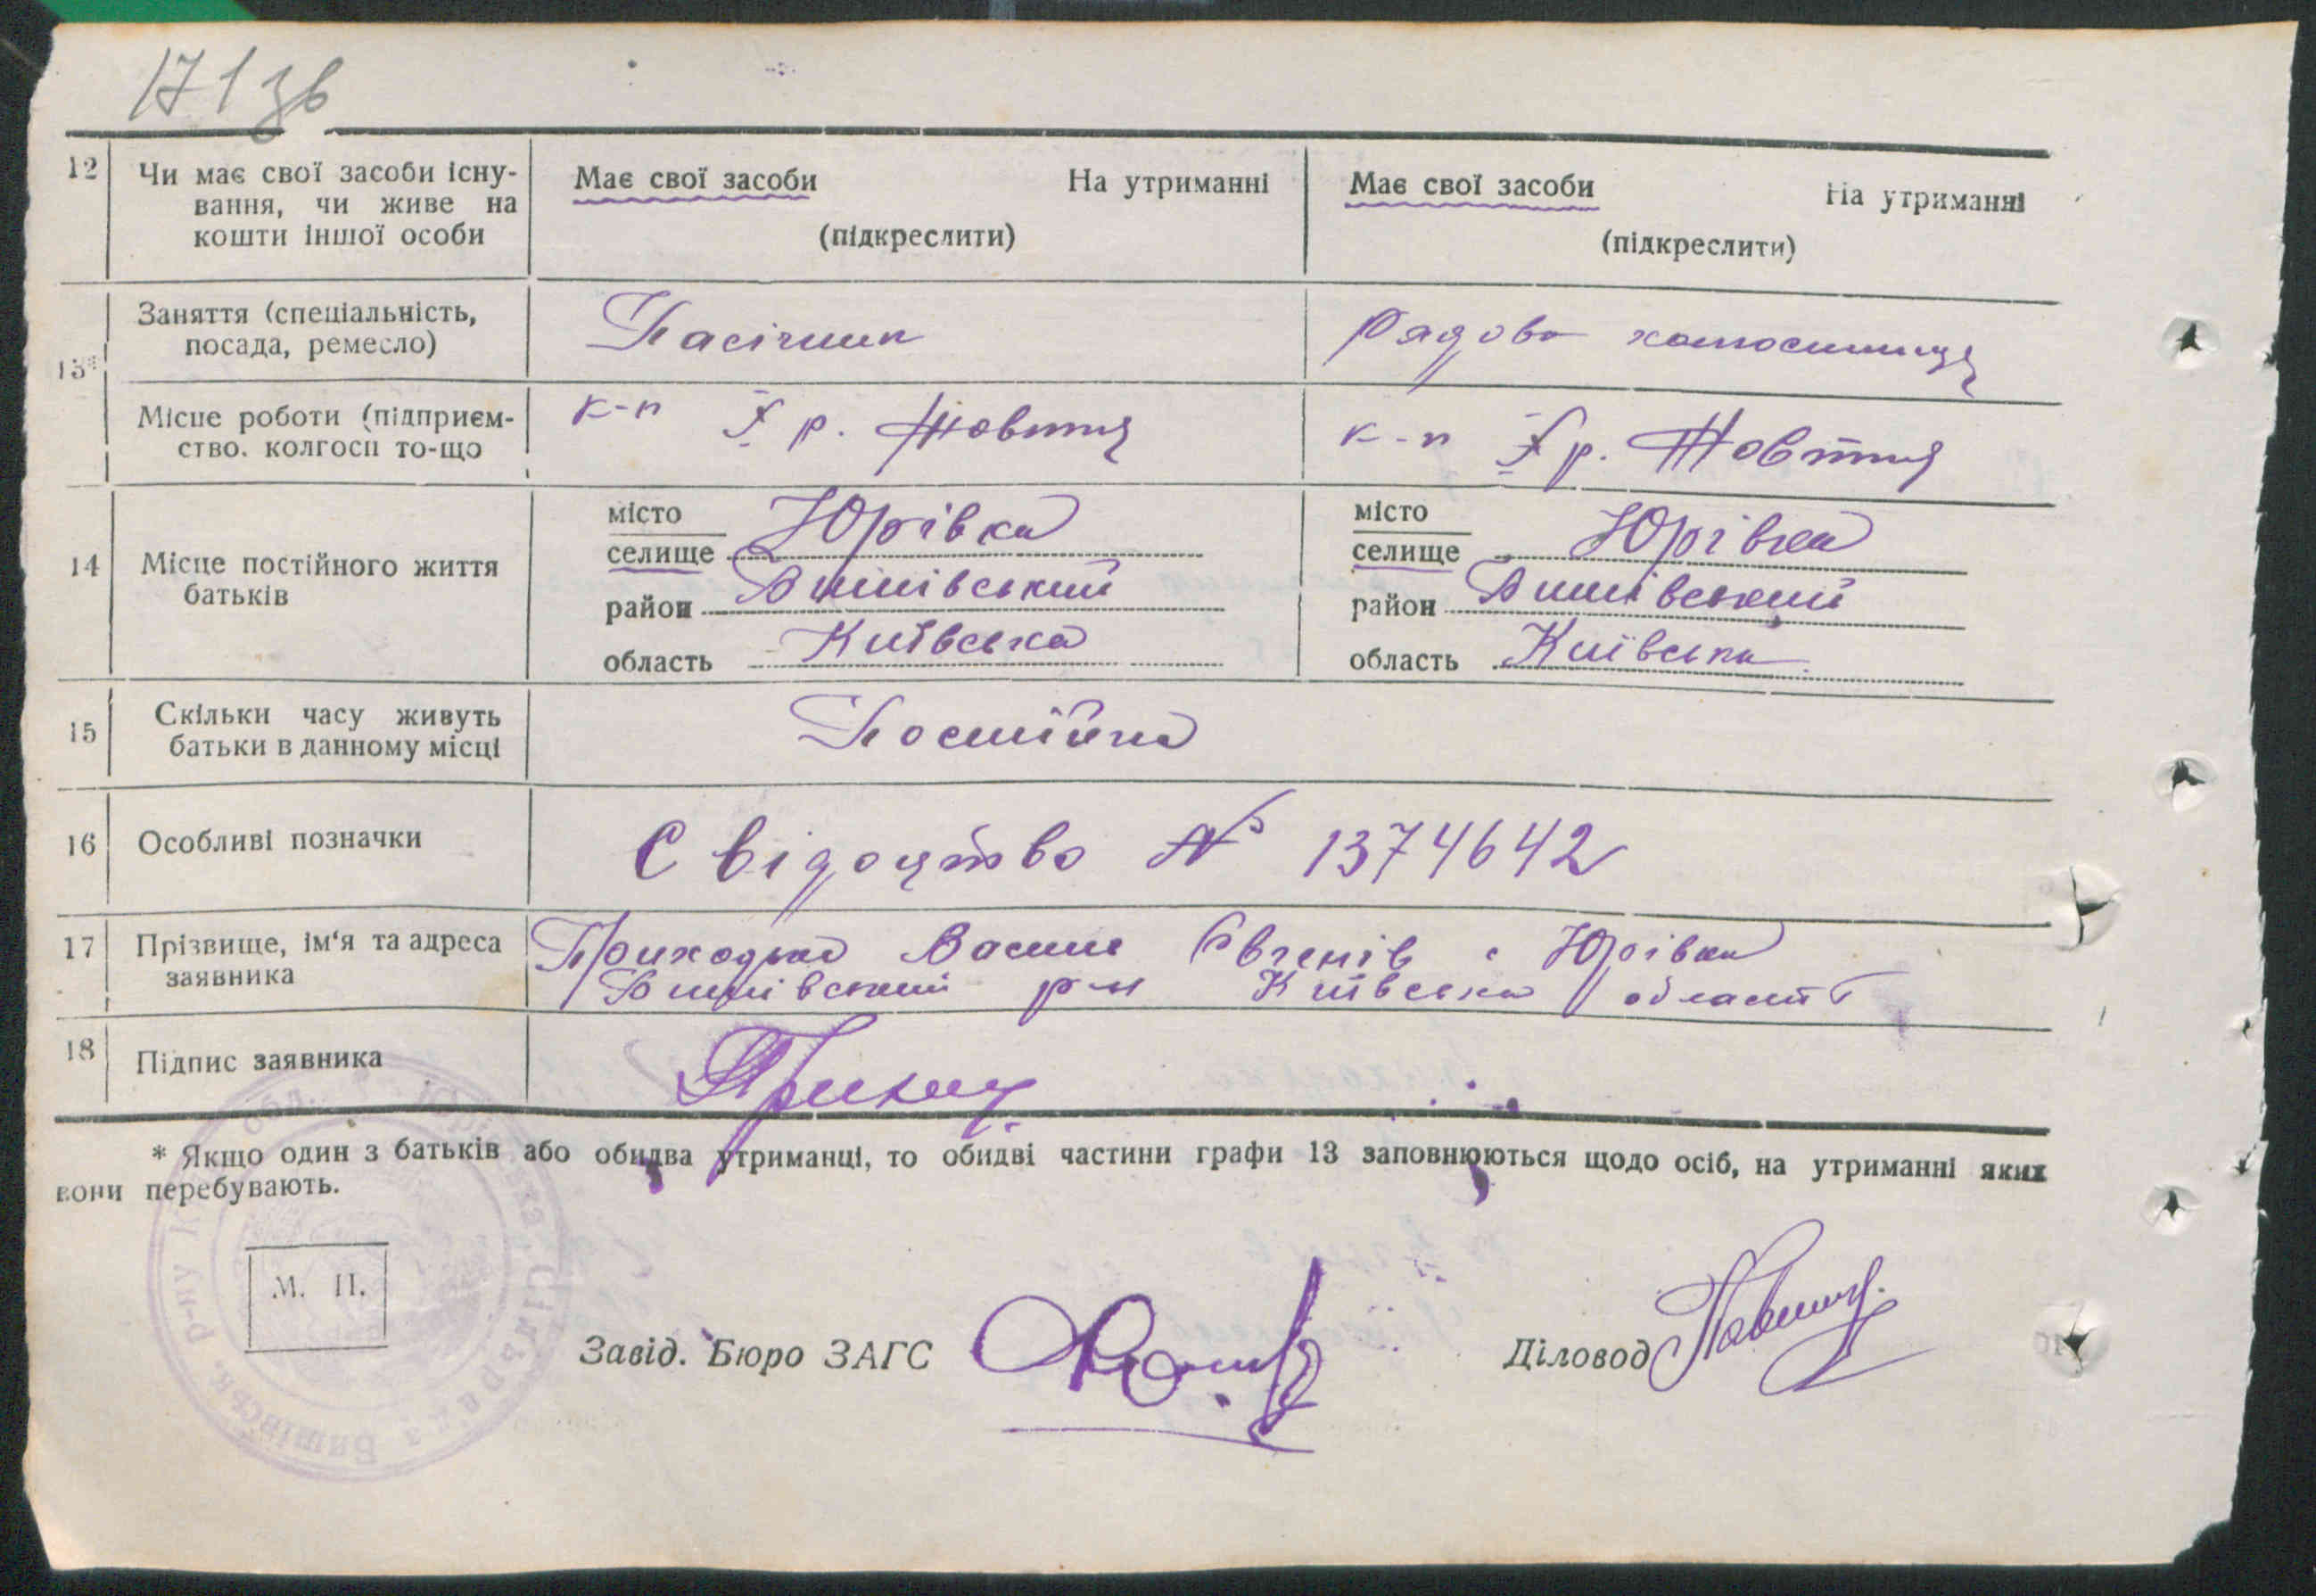 171 зв
12 Чи має свої засоби існу- Має свої засоби На утриманні Має свої засоби На утриманні
вання, чи живе на
кошти іншої особи (підкреслити) (підкреслити)
13* Заняття (спеціальність, Пасічник Рядова колгоспниця
посада, ремесло)
Місце роботи (підприєм- к-п Х р. Жовтня к-п Х р. Жовтня
ство, колгосп то-що
14 Місце постійного життя місто Юрівка місто Юрівка
батьків селище селище
район Бишівський район Бишівський
область Київська область Київська
15 Скільки часу живуть Постійно
батьки в данному місці
16 Особливі позначки Свідоцтво № 1374642
17 Прізвище, ім'я та адреса Приходько Василь Євгенів с Юрівка
заявника Бишівський р-н Київська
18 Підпис заявника
* Якщо один з батьків або обидва утриманці, то обидві частини графи 13 заповнюються щодо осіб, на утриманні яких
вони перебувають.
М. П.
Завід. Бюро ЗАГС Діловод